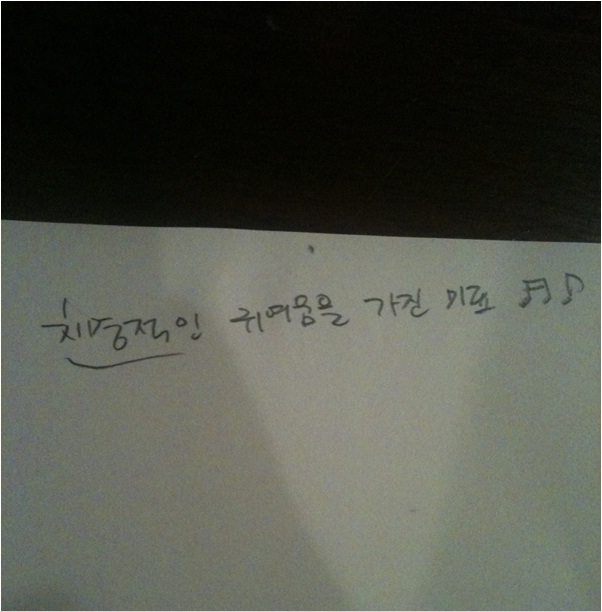 치명적인 귀여움을 가진 미표 ♬♪